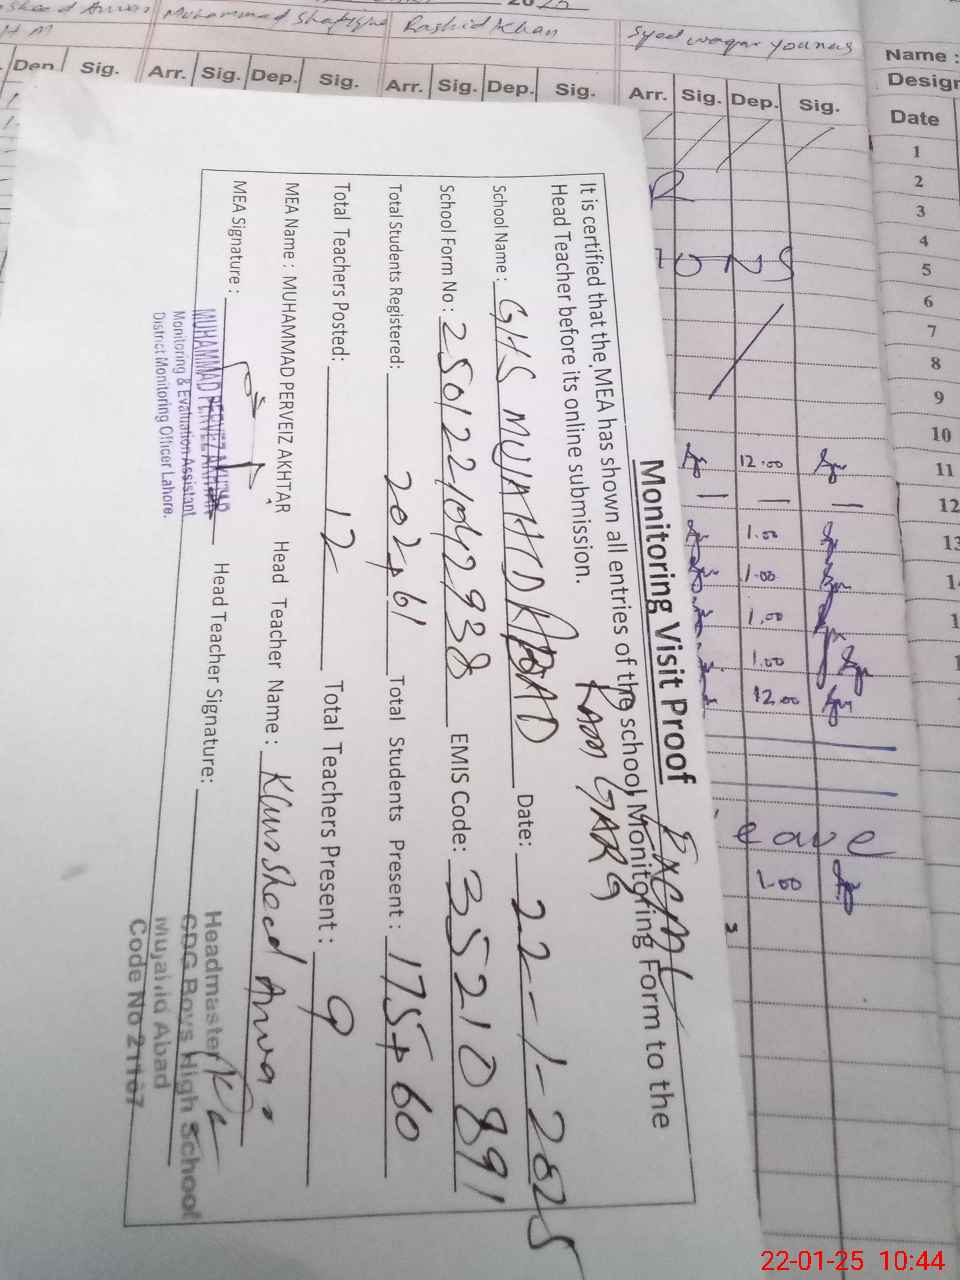 Muhammad Shafique
Rashid Khan
Syed waqar younas
Name :
H M
Dep. Sig. Arr. Sig. Dep. Sig. Arr. Sig. Dep. Sig. Arr. Sig. Dep. Sig.
Date
1
2
3
4
5
6
7
8
9
10
11
12
12.00
1.00
1.00
1.00
1.00
12.00
eave
1.00
Monitoring Visit Proof
It is certified that the MEA has shown all entries of the school Monitoring Form to the
Head Teacher before its online submission.
RAM GARG
School Name : GHS MUJAHIDABAD Date: 22-1-2025
School Form No : 2501221042938 EMIS Code: 35210891
Total Students Registered: 202+61 Total Students Present : 175+60
Total Teachers Posted: 12 Total Teachers Present : 9
MEA Name : MUHAMMAD PERVEIZ AKHTAR Head Teacher Name : Khursheed Anwar
MEA Signature : Head Teacher Signature:
MUHAMMAD PERVEIZ AKHTAR
Monitoring & Evaluation Assistant
District Monitoring Officer Lahore.
Headmaster
CDG Boys High School
Mujahid Abad
Code No 21107
22-01-25 10:44